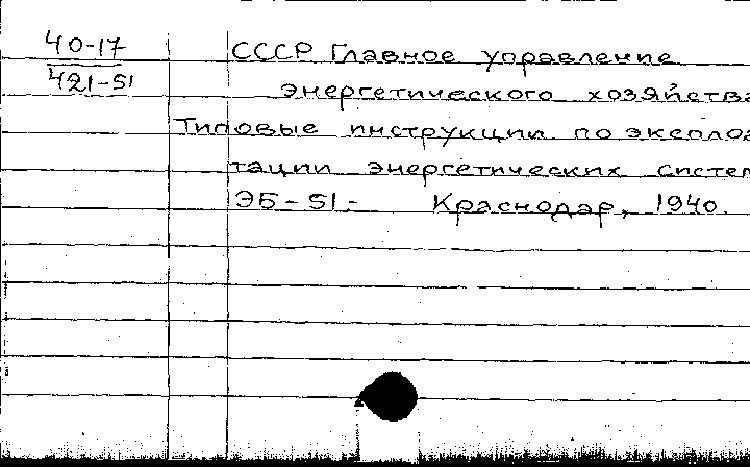 40-17
421-51
СССР. Главное управление
энергетического хозяйства
Типовые инструкции. по эксплоа
тации энергетических систем
ЭБ-51- Краснодар, 1940.